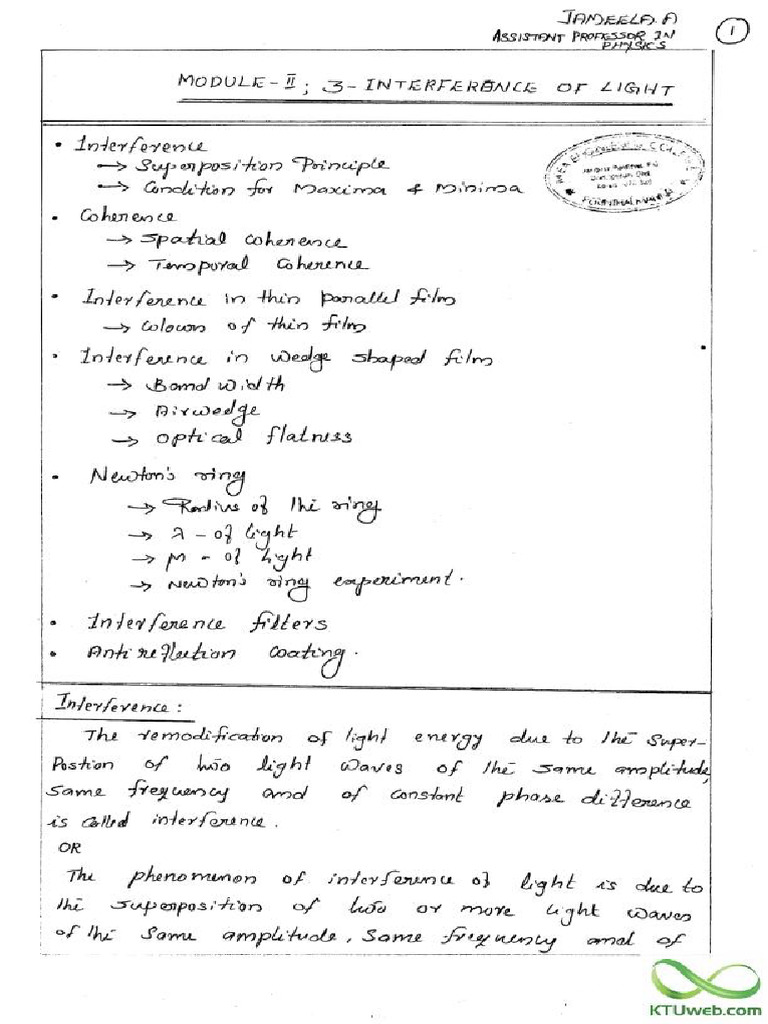 JAMEELA.A
ASSISTANT PROFESSOR IN
PHYSICS
1
MODULE-II; 3-INTERFERENCE OF LIGHT
• Interference
→ Superposition Principle
→ Condition for Maxima & Minima
• Coherence
→ Spatial Coherence
→ Temporal Coherence
• Interference in thin parallel film
→ Colours of thin film
• Interference in wedge shaped film
→ Band width
→ Airwedge
→ Optical flatness
• Newton's ring
→ Radius of the ring
→ λ - of light
→ μ - of light
→ Newton's ring experiment.
• Interference filters
• Antireflection coating.
Interference:
The remodification of light energy due to the Super-
Postion of two light waves of the same amplitude,
same frequency and of constant phase difference
is called interference.
OR
The phenomenon of interference of light is due to
the superposition of two or more light waves
of the same amplitude, same frequency and of
KTUweb.com